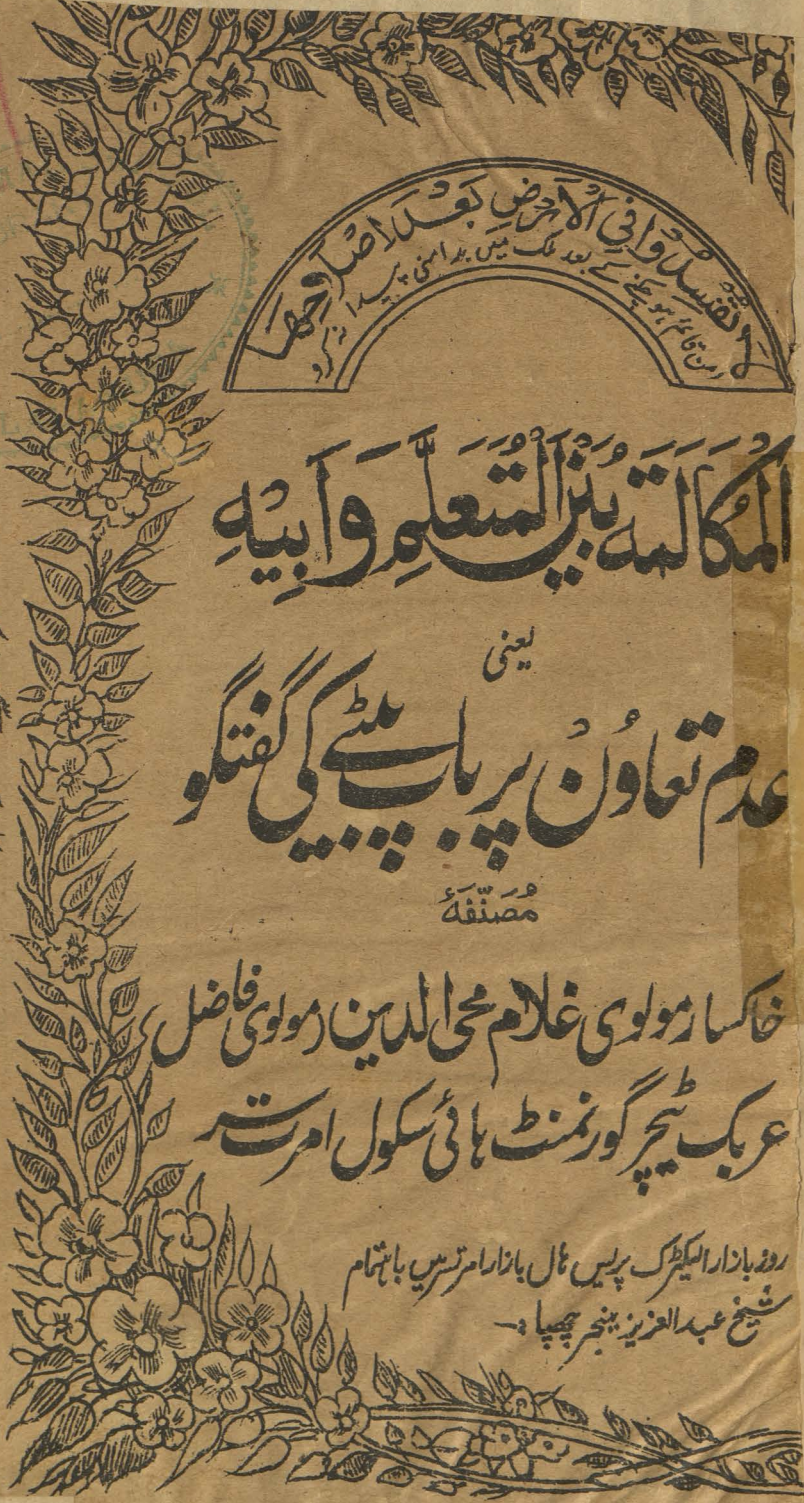 لَا تُفْسِدُوا فِی الْاَرْضِ بَعْدَ اِصْلَاحِهَا
امن قائم ہو چکنے کے بعد ملک میں بدامنی پیدا نہ کرو
اَلْمُکَالَمَةُ بَیْنَ الْمُتَعَلِّمِ وَاَبِیْهِ
یعنی
عدم تعاون پر باپ بیٹے کی گفتگو
مُصَنَّفَهٗ
خاکسار مولوی غلام محی الدین (مولوی فاضل)
عربک ٹیچر گورنمنٹ ہائی سکول امرت سر
روز بازار الیکٹرک پریس ہال بازار امرتسر میں باہتمام
شیخ عبد العزیز مینجر چھپا :-